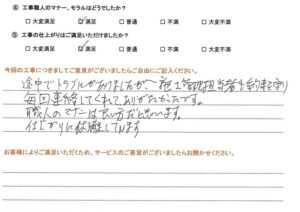 ④ 工事職人のマナー、モラルはどうでしたか?
□ 大変満足 ☑ 満足 □ 普通 □ 不満 □ 大変不満
⑤ 工事の仕上がりはご満足いただけましたか?
□ 大変満足 ☑ 満足 □ 普通 □ 不満 □ 大変不満
今回の工事につきましてご意見がございましたらご自由にご記入ください。
途中でトラブルがありましたが、施工管理担当者が約束を守り
毎回連絡してくれてありがたかったです。
職人のマナーは良い方だと思います。
仕上がりに依頼しています
お客様によりご満足いただくため、サービスのご要望がございましたらお聞かせください。